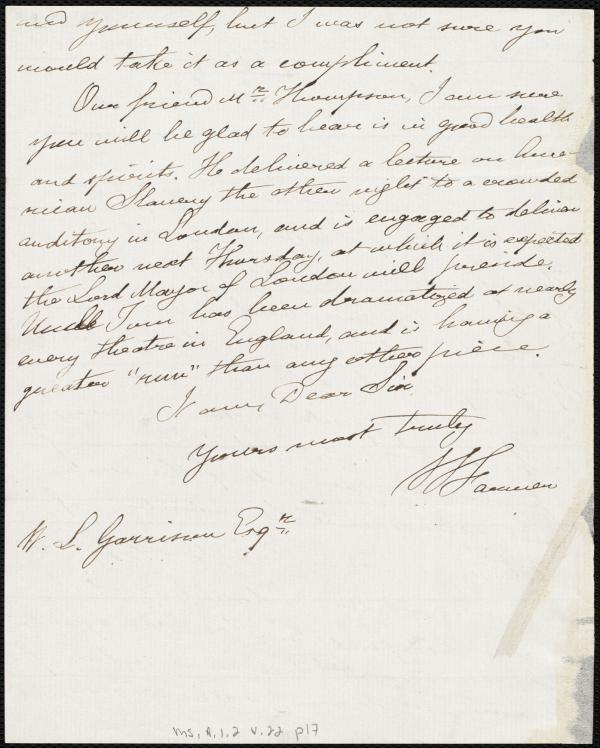 and yourself, but I was not sure you
would take it as a compliment.
Our friend Mr Thompson, I am sure
you will be glad to hear is in good health
and spirits. He delivered a lecture on Ame-
rican Slavery the other night to a crowded
auditory in London, and is engaged to deliver
another next Thursday, at which it is expected
the Lord Mayor of London will preside.
Uncle Tom has been dramatized at nearly
every theatre in England, and is having a
greater "run" than any other piece.
I am, Dear Sir
Yours most truly
W. L. Garrison Esqr.
Ms, A.1.2 v.22 p17